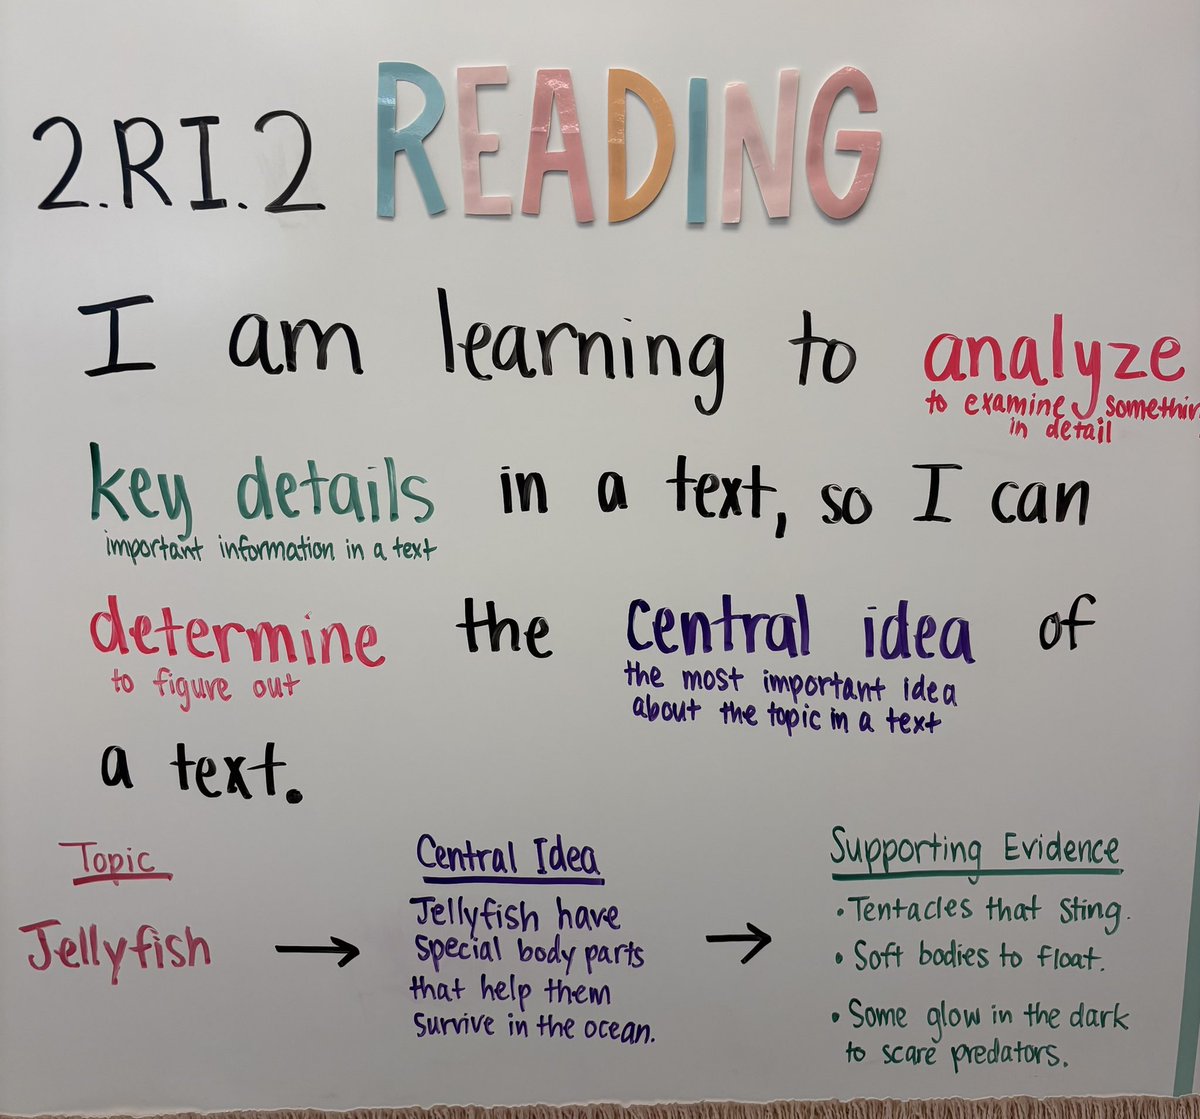 2.RI.2 READING
I am learning to analyze
to examine somethin
in detail
key details in a text, so I can
important information in a text
determine the central idea of
to figure out
the most important idea
about the topic in a text
a text.
Topic
Jellyfish
Central Idea
Jellyfish have
special body parts
that help them
survive in the ocean.
Supporting Evidence
• Tentacles that sting.
• Soft bodies to float.
• Some glow in the dark
to scare predators.